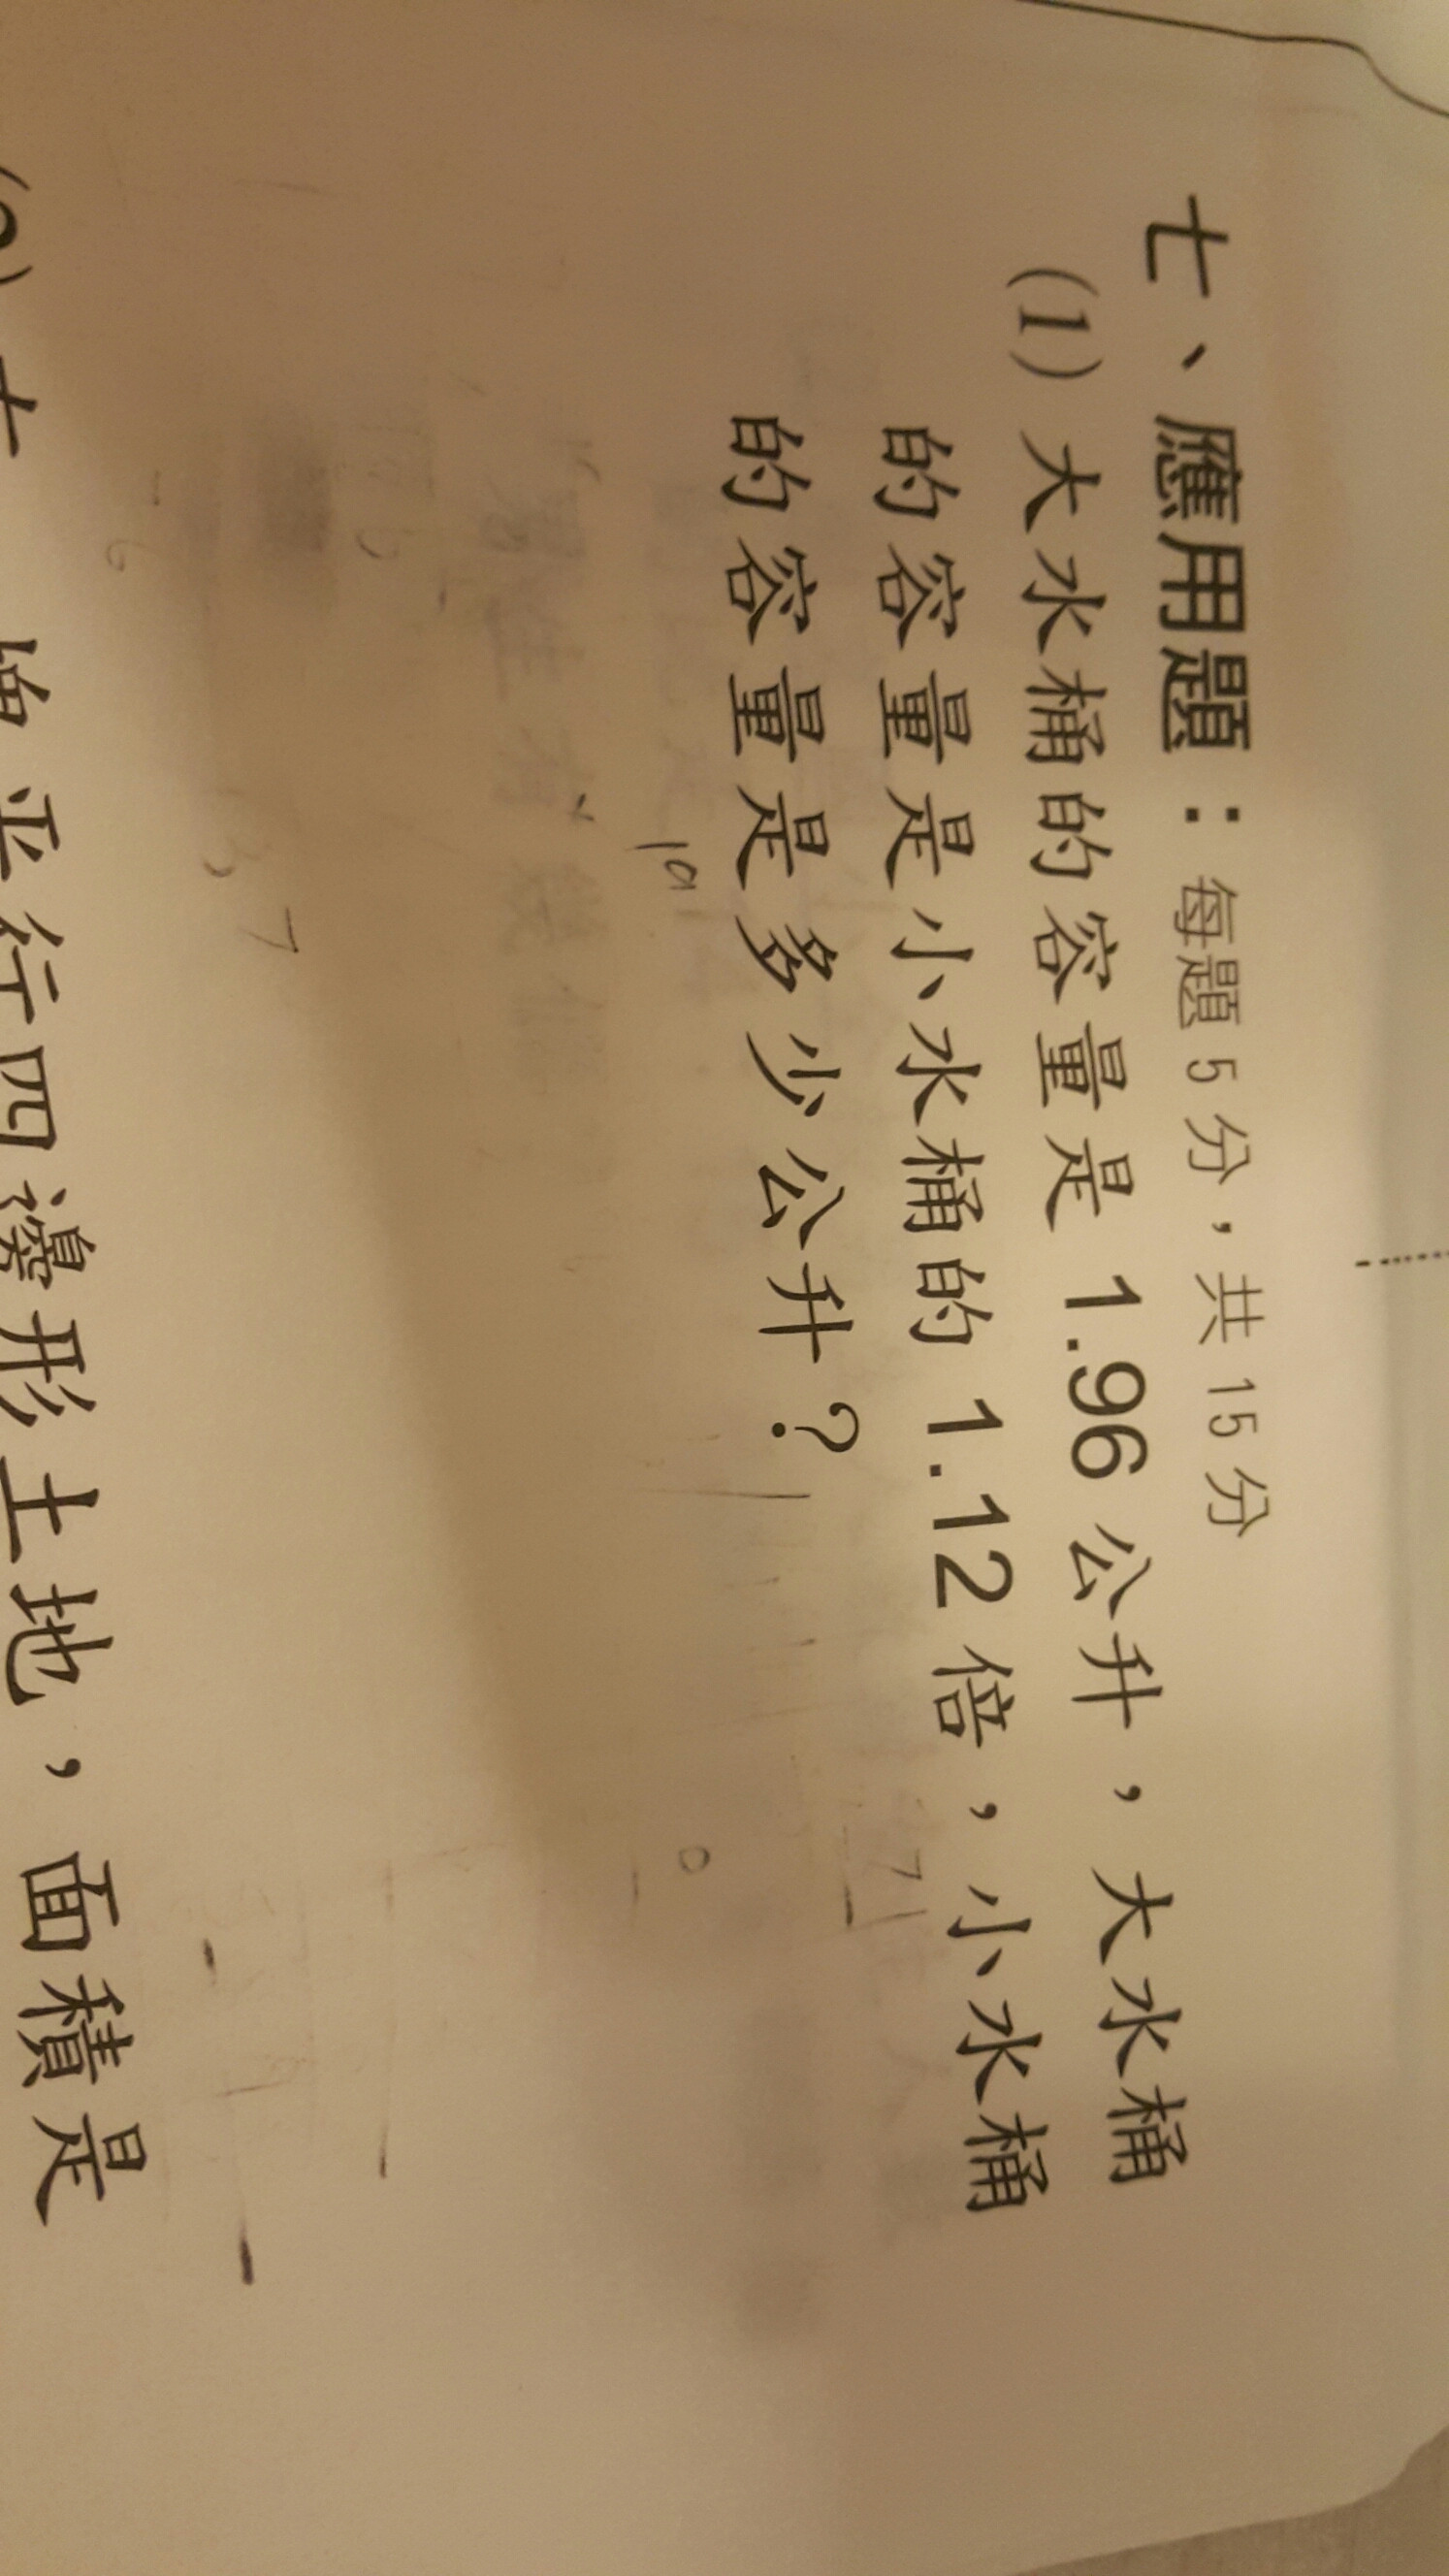 七、應用題：每題 5 分，共 15 分
(1) 大水桶的容量是 1.96 公升，大水桶
的容量是小水桶的 1.12 倍，小水桶
的容量是多少公升？
平行四邊形土地，面積是